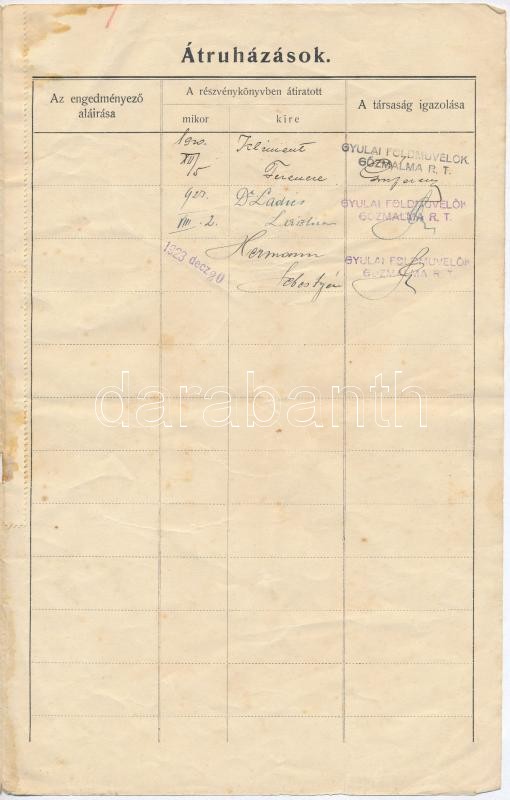 Átruházások.
Az engedményező
aláirása
A részvénykönyvben átiratott
mikor
kire
A társaság igazolása
Klement
Ferencz
GYULAI FÖLDMŰVELŐK
GŐZMALMA R. T.
921.
VIII. 2.
Dr Ladics
László
GYULAI FÖLDMŰVELŐK
GŐZMALMA R. T.
1923 decz 20
Hermann
Sebestyén
GYULAI FÖLDMŰVELŐK
GŐZMALMA R. T.
darabanth